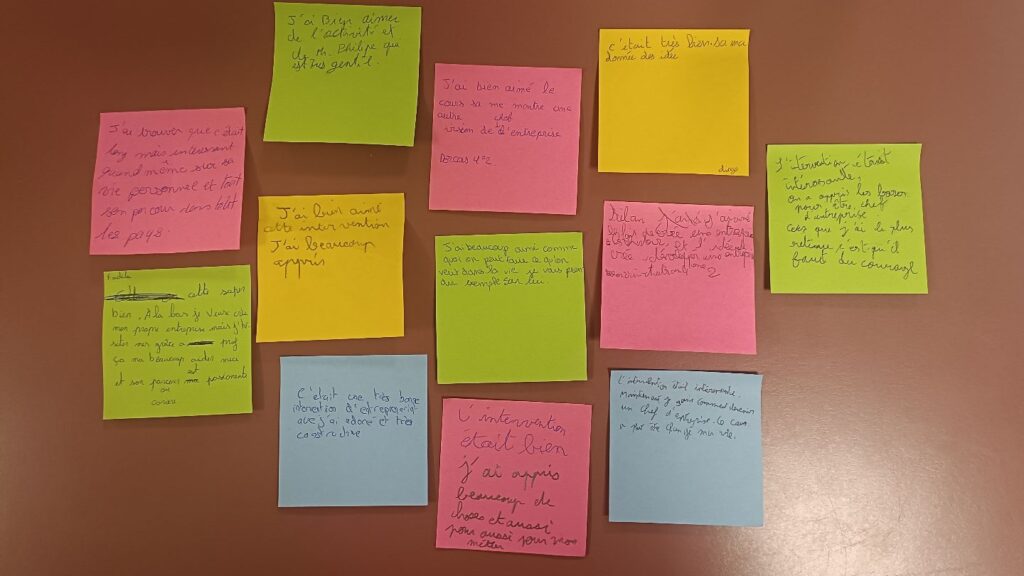 J'ai Bien aimer
de l'activité et
de Mr. Philipe que
est très gentil.
J'ai bien aimé le
cours sa me montre une
autre
vision de l'entreprise
Dorcas 4°2
c'était très bien. sa ma
donnée des idée
diego
J'ai trouver que c'était
long mais intéressant
quand même sur sa
vie personnel et tout
son parcour dans tout
les pays.
J'ai bien aimé
cette intervention
J'ai beaucoup
appris
J'ai beaucoup aimé comme
quoi on peut faire ce qu'on
veut dans la vie je vais prendre
du exemple sur lui.
l'entreprise
2
L'intervention étaient
intéressante,
On a appris les bases
pour être chef
d'entreprise
Ceci que j'ai le plus
retenue s'est qu'il
faut du courage
cette super
bien, À la base je veux crée
mon propre entreprise mais j'hé-
siter mes grâce a prof
ça ma beaucoup aider merci
et son parcours est passionante
C'était une très bonne
intervention d'entrepreneriat
que j'ai adoré et très
constructive
L'intervention
était bien
j'ai appris
beaucoup de
choses et aussi
pour aussi pour mon
métier
L'intervention était intéressante,
Maintenant je sais comment devenir
un chef d'entreprise. Ce cours
a peut être changé ma vie.